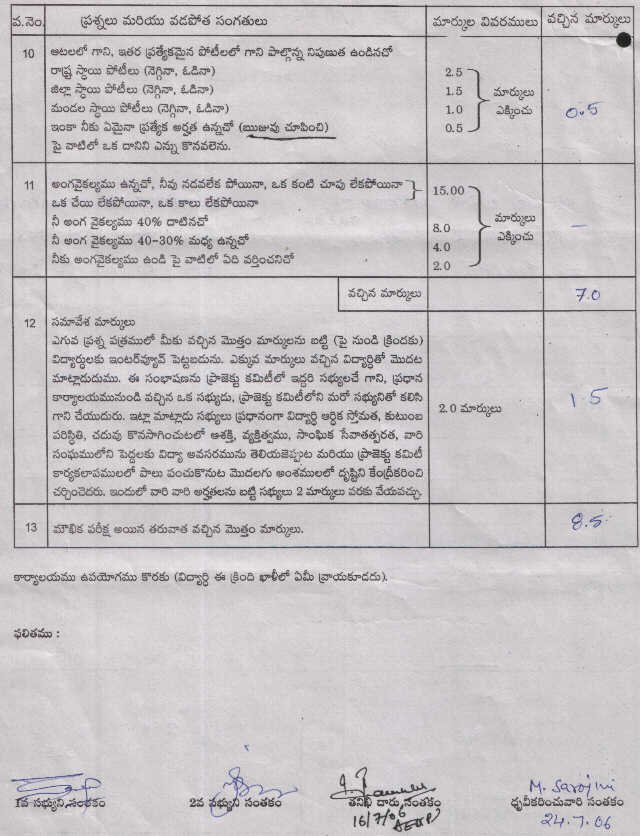 వ.నెం. ప్రశ్నలు మరియు వడపోత సంగతులు మార్కుల వివరములు వచ్చిన మార్కులు
10 ఆటలలో గాని, ఇతర ప్రత్యేకమైన పోటీలలో గాని పాల్గొన్న నిపుణుత ఉండినచో
రాష్ట్ర స్థాయి పోటీలు (నెగ్గినా, ఓడినా) 2.5
జిల్లా స్థాయి పోటీలు (నెగ్గినా, ఓడినా) 1.5 మార్కులు
మండల స్థాయి పోటీలు (నెగ్గినా, ఓడినా) 1.0 ఎక్కించు 0.5
ఇంకా నీకు ఏమైనా ప్రత్యేక అర్హత ఉన్నచో (ఋజువు చూపించి) 0.5
పై వాటిలో ఒక దానిని ఎన్ను కొనవలెను.
11 అంగవైకల్యము ఉన్నచో, నీవు నడవలేక పోయినా, ఒక కంటి చూపు లేకపోయినా 15.00
ఒక చేయి లేకపోయినా, ఒక కాలు లేకపోయినా
నీ అంగ వైకల్యము 40% దాటినచో 8.0 మార్కులు –
నీ అంగ వైకల్యము 40-30% మధ్య ఉన్నచో 4.0 ఎక్కించు
నీకు అంగవైకల్యము ఉండి పై వాటిలో ఏది వర్తించనిచో 2.0
వచ్చిన మార్కులు 7.0
12 సమావేశ మార్కులు
ఎగువ ప్రశ్న పత్రములో మీకు వచ్చిన మొత్తం మార్కులను బట్టి (పై నుండి క్రిందకు)
విద్యార్థులకు ఇంటర్వ్యూవ్ పెట్టబడును. ఎక్కువ మార్కులు వచ్చిన విద్యార్థితో మొదట
మాట్లాడుదుము. ఈ సంభాషణను ప్రాజెక్టు కమిటీలో ఇద్దరి సభ్యులచే గాని, ప్రధాన
కార్యాలయమునుండి వచ్చిన ఒక సభ్యుడు, ప్రాజెక్టు కమిటీలోని మరో సభ్యునితో కలిసి
గాని చేయుదురు. ఇట్లా మాట్లాడు సభ్యులు ప్రధానంగా విద్యార్థి ఆర్థిక స్తోమత, కుటుంబ 2.0 మార్కులు 1.5
పరిస్థితి, చదువు కొనసాగించుటలో ఆశక్తి, వ్యక్తిత్వము, సాంఘిక సేవాతత్పరత, వారి
సంఘములోని పెద్దలకు విద్యా అవసరమును తెలియజెప్పుట మరియు ప్రాజెక్టు కమిటీ
కార్యకలాపములలో పాలు పంచుకొనుట మొదలగు అంశములలో దృష్టిని కేంద్రీకరించి
చర్చించెదరు. ఇందులో వారి వారి అర్హతలను బట్టి సభ్యులు 2 మార్కులు వరకు వేయవచ్చు.
13 మౌఖిక పరీక్ష అయిన తరువాత వచ్చిన మొత్తం మార్కులు. 8.5
కార్యాలయము ఉపయోగము కొరకు (విద్యార్థి ఈ క్రింది ఖాళీలో ఏమీ వ్రాయకూడదు).
ఫలితము :
M. Sarojini
1వ సభ్యుని సంతకం 2వ సభ్యుని సంతకం తనిఖీ దారు సంతకం ధృవీకరించువారి సంతకం
16/7/06 24.7.06